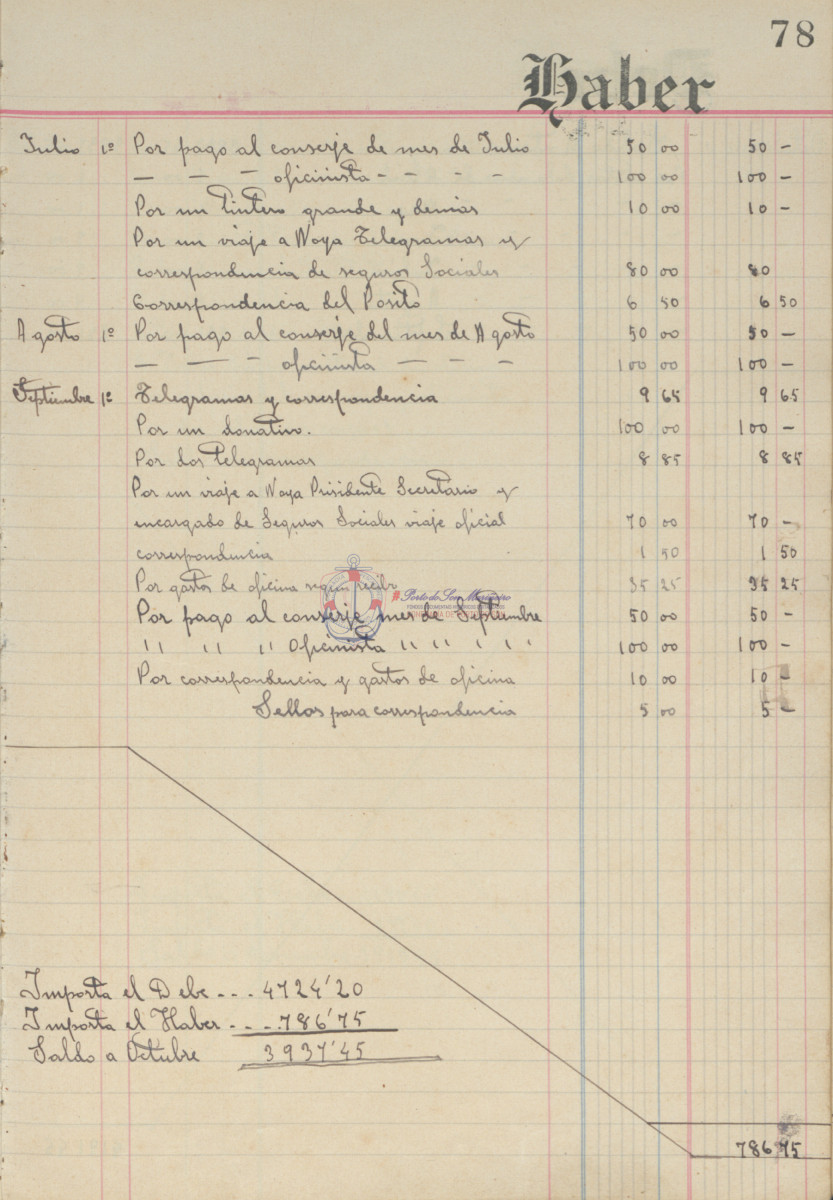 78
Haber
Julio 1º Por pago al conserje de mes de Julio 50 00 50 -
— — — oficinista - - - - 100 00 100 -
Por un tintero grande y demas 10 00 10 -
Por un viaje a Noya Telegramas y
correspondencia de seguros Sociales 80 00 80
Correspondencia del Posito 6 50 6 50
Agosto 1º Por pago al conserje del mes de Agosto 50 00 50 -
— — — oficinista — — — 100 00 100 -
Septiembre 1º Telegramas y correspondencia 9 65 9 65
Por un donativo. 100 00 100 -
Por dos telegramas 8 85 8 85
Por un viaje a Noya Presidente Secretario y
encargado de Seguros Sociales viaje oficial 70 00 70 -
correspondencia 1 50 1 50
Por gastos de oficina segun recibo 35 25 35 25
Porto do Son Mariñeiro
Por pago al conserje mes de Septiembre 50 00 50 -
" " " Oficinista " " " " " 100 00 100 -
Por correspondencia y gastos de oficina 10 00 10 -
Sellos para correspondencia 5 00 5 -
Importa el Debe - - - 4724'20
Importa el Haber - - - - 786'75
Saldo a Octubre 3937'45
786 75